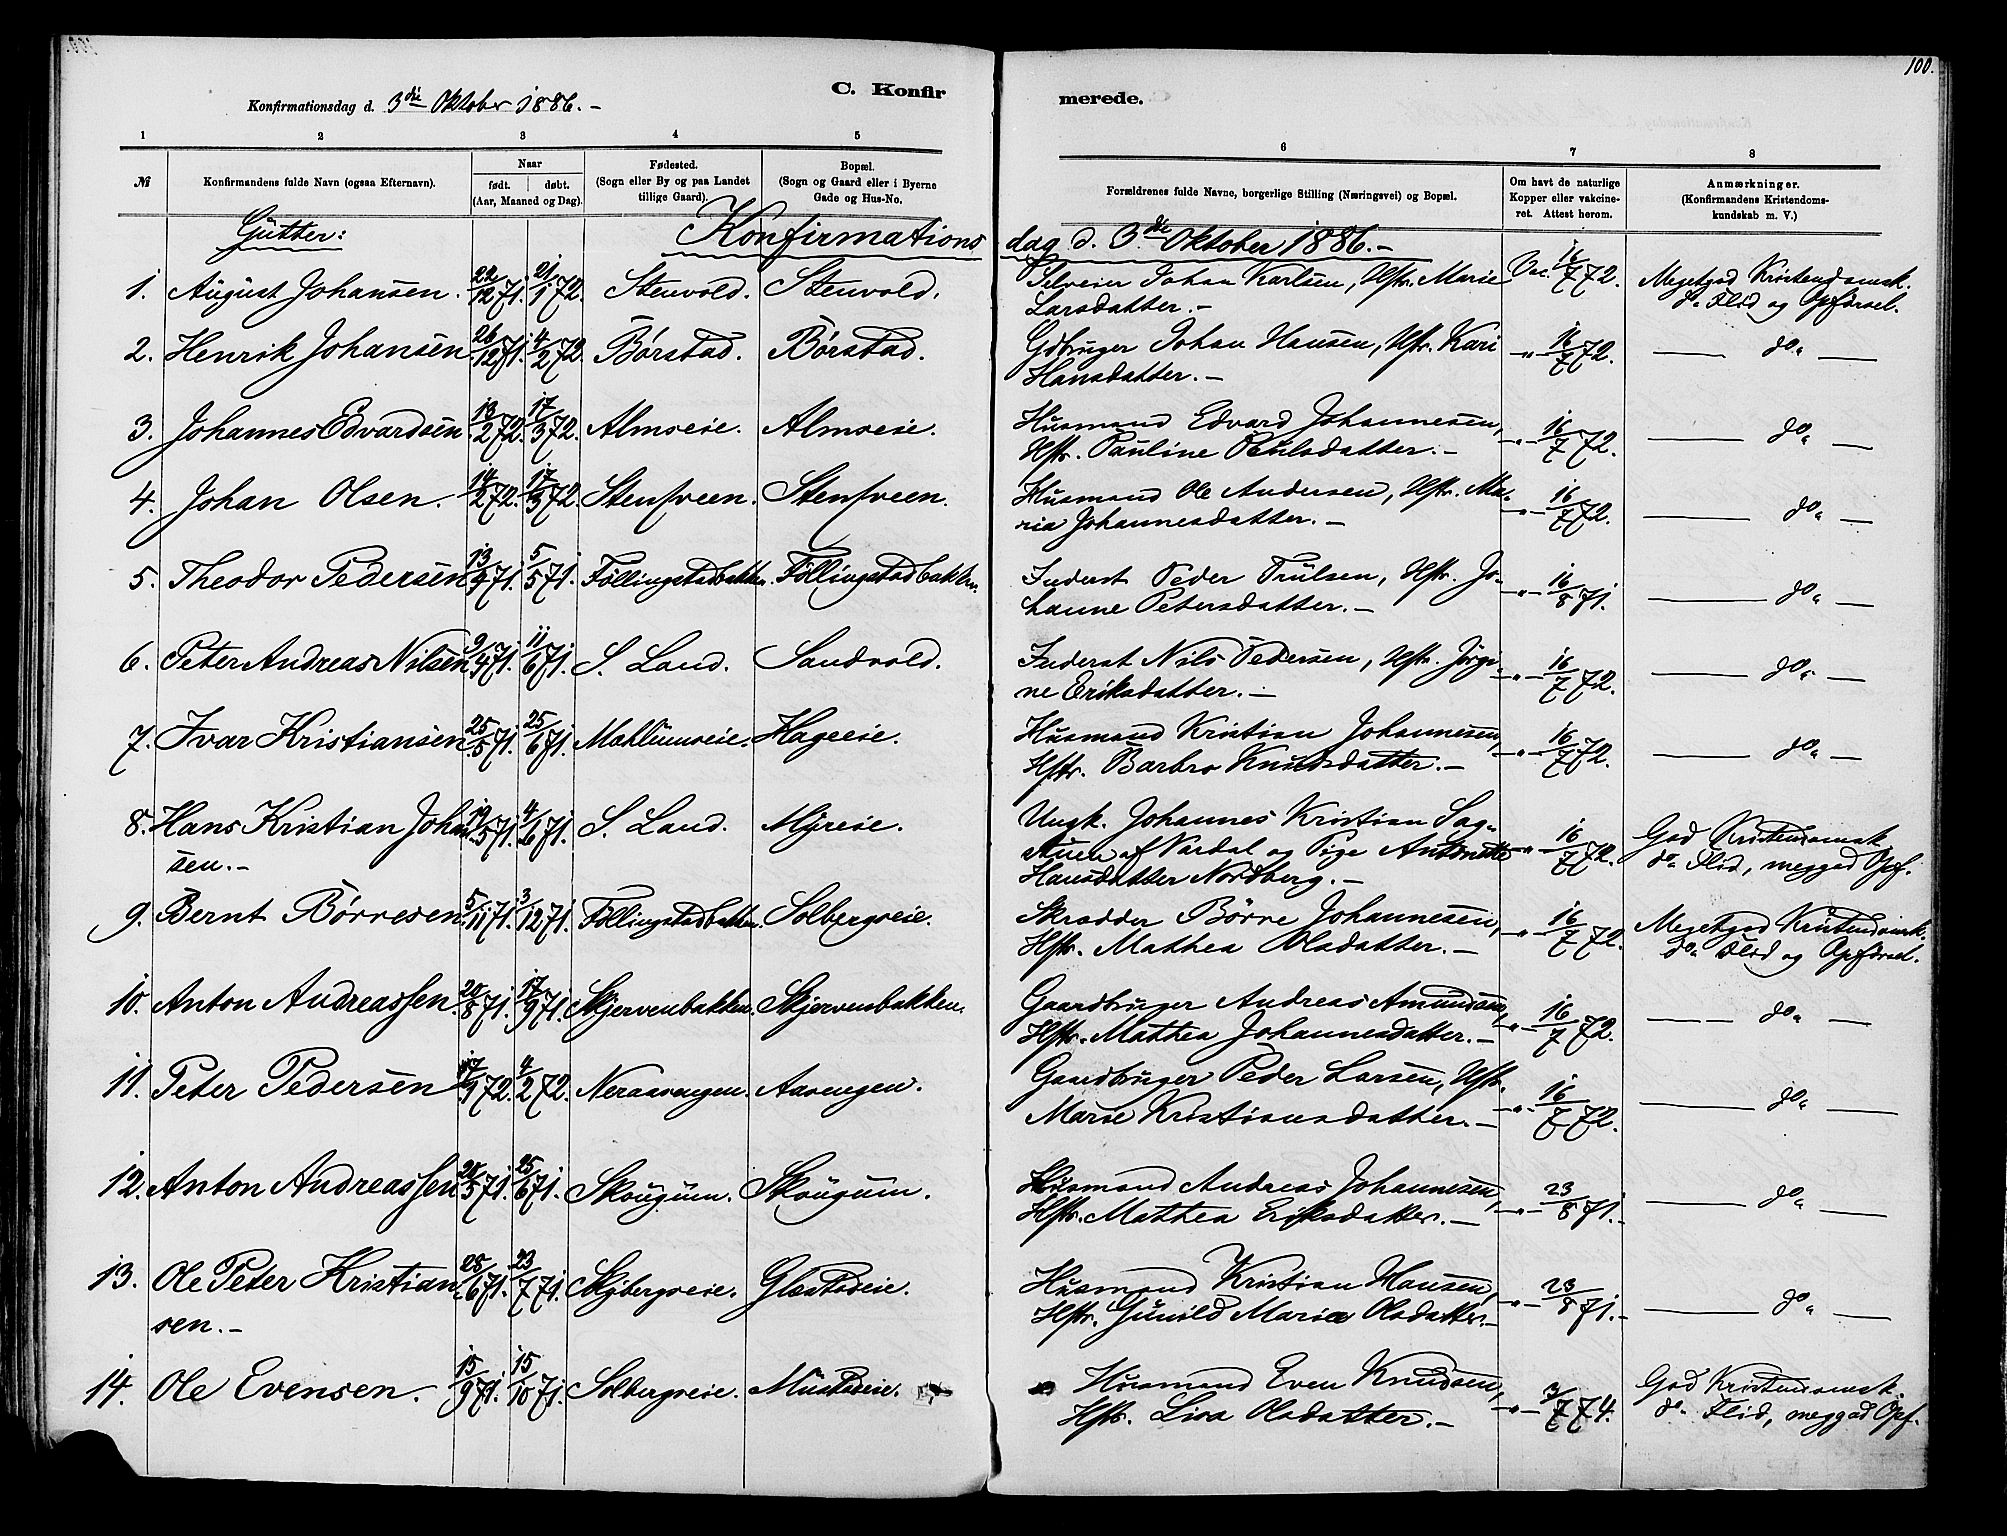 100.
C. Konfirmerede.
Konfirmationsdag d. 3die Oktober 1886. -
1 2 3 4 5 6 7 8
№
Konfirmandens fulde Navn (ogsaa Efternavn).
Naar
født. døbt.
(Aar, Maaned og Dag).
Fødested.
(Sogn eller By og paa Landet
tillige Gaard).
Bopæl.
(Sogn og Gaard eller i Byerne
Gade og Hus-No.
Forældrenes fulde Navne, borgerlige Stilling (Næringsvei) og Bopæl.
Om havt de naturlige
Kopper eller vakcine-
ret. Attest herom.
Anmærkninger.
(Konfirmandens Kristendoms-
kundskab m. V.)
Gutter: Konfirmationsdag d. 3die Oktober 1886. -
1. August Johansen. 22/12 71. 21/1 72. Stenvold. Stenvold. Selveier Johan Karlsen, Hstr. Marie Vac. 16/7 72. Megetgod Kristendomsk.
Larsdatter. - do Flid og Opførsel.
2. Henrik Johansen 26/12 71. 4/2 72. Børstad. Børstad. Gdbruger Johan Hansen, Hstr. Kari -"- 16/7 72. do
Hansdatter. -
3. Johannes Edvardsen 13/2 72. 17/3 72. Almseie. Almseie. Husmand Edvard Johannesen, -"- 16/7 72. do
Hstr. Pauline Poulsdatter. -
4. Johan Olsen. 14/2 72. 17/3 72. Stensveen. Stensveen. Husmand Ole Andersen, Hstr. Ma- -"- 16/7 72. do
ria Johannesdatter. -
5. Theodor Pedersen 13/4 71. 5/5 71. Føllingstadbakken. Føllingstadbakken. Inderst Peder Trulsen, Hstr. Jo- -"- 16/8 71. do
hanne Petersdatter. -
6. Peter Andreas Nilsen 9/4 71. 11/6 71. S. Land. Sandvold. Inderst Nils Pedersen, Hstr. Jørgi- -"- 16/7 72. do
ne Eriksdatter. -
7. Ivar Kristiansen 25/5 71. 25/6 71. Mahlumseie. Hageeie. Husmand Kristian Johannesen, -"- 16/7 72. do
Hstr. Barbro Knudsdatter. -
8. Hans Kristian Johan 19/5 71. 4/6 71. S. Land. Myreie. Ungk. Johannes Kristian Sag- -"- 16/7 72. God Kristendomsk
sen. - stuen af Nordal og Pige Antonette do Flid, meggod Opf.
Hansdatter Nordberg. -
9. Bernt Børresen 5/11 71. 3/12 71. Føllingstadbakken. Solbergseie. Skrædder Børre Johannesen, -"- 16/7 72. Megetgod Kristendomsk.
Hstr. Mathea Olsdatter. - do Flid og Opførsel.
10. Anton Andreassen. 20/8 71. 17/9 71. Skjervenbakken. Skjervenbakken. Gaardbruger Andreas Amundsen, -"- 16/7 72. do
Hstr. Mathea Johannesdatter. -
11. Peter Pedersen 72. 4/2 72. Neraasengen. Aasengen. Gaardbruger Peder Larsen, Hstr. -"- 16/7 72. do
Marie Kristiansdatter. -
12. Anton Andreassen 28/5 71. 25/6 71. Skougum. Skougum. Husmand Andreas Johannesen, -"- 23/8 71. - do
Hstr. Mathea Eriksdatter. -
13. Ole Peter Kristian 28/6 71. 23/7 71. Skybergseie. Glæstadeie. Husmand Kristian Hansen, -"- 23/8 71. - do
sen. - Hstr. Gunild Marie Olsdatter. -
14. Ole Evensen. - 15/9 71. 15/10 71. Solbergseie. Mustadeie. Husmand Even Knudsen, -"- 3/7 74. God Kristendomsk.
Hstr. Lisa Olsdatter. - do Flid, meggod Opf.